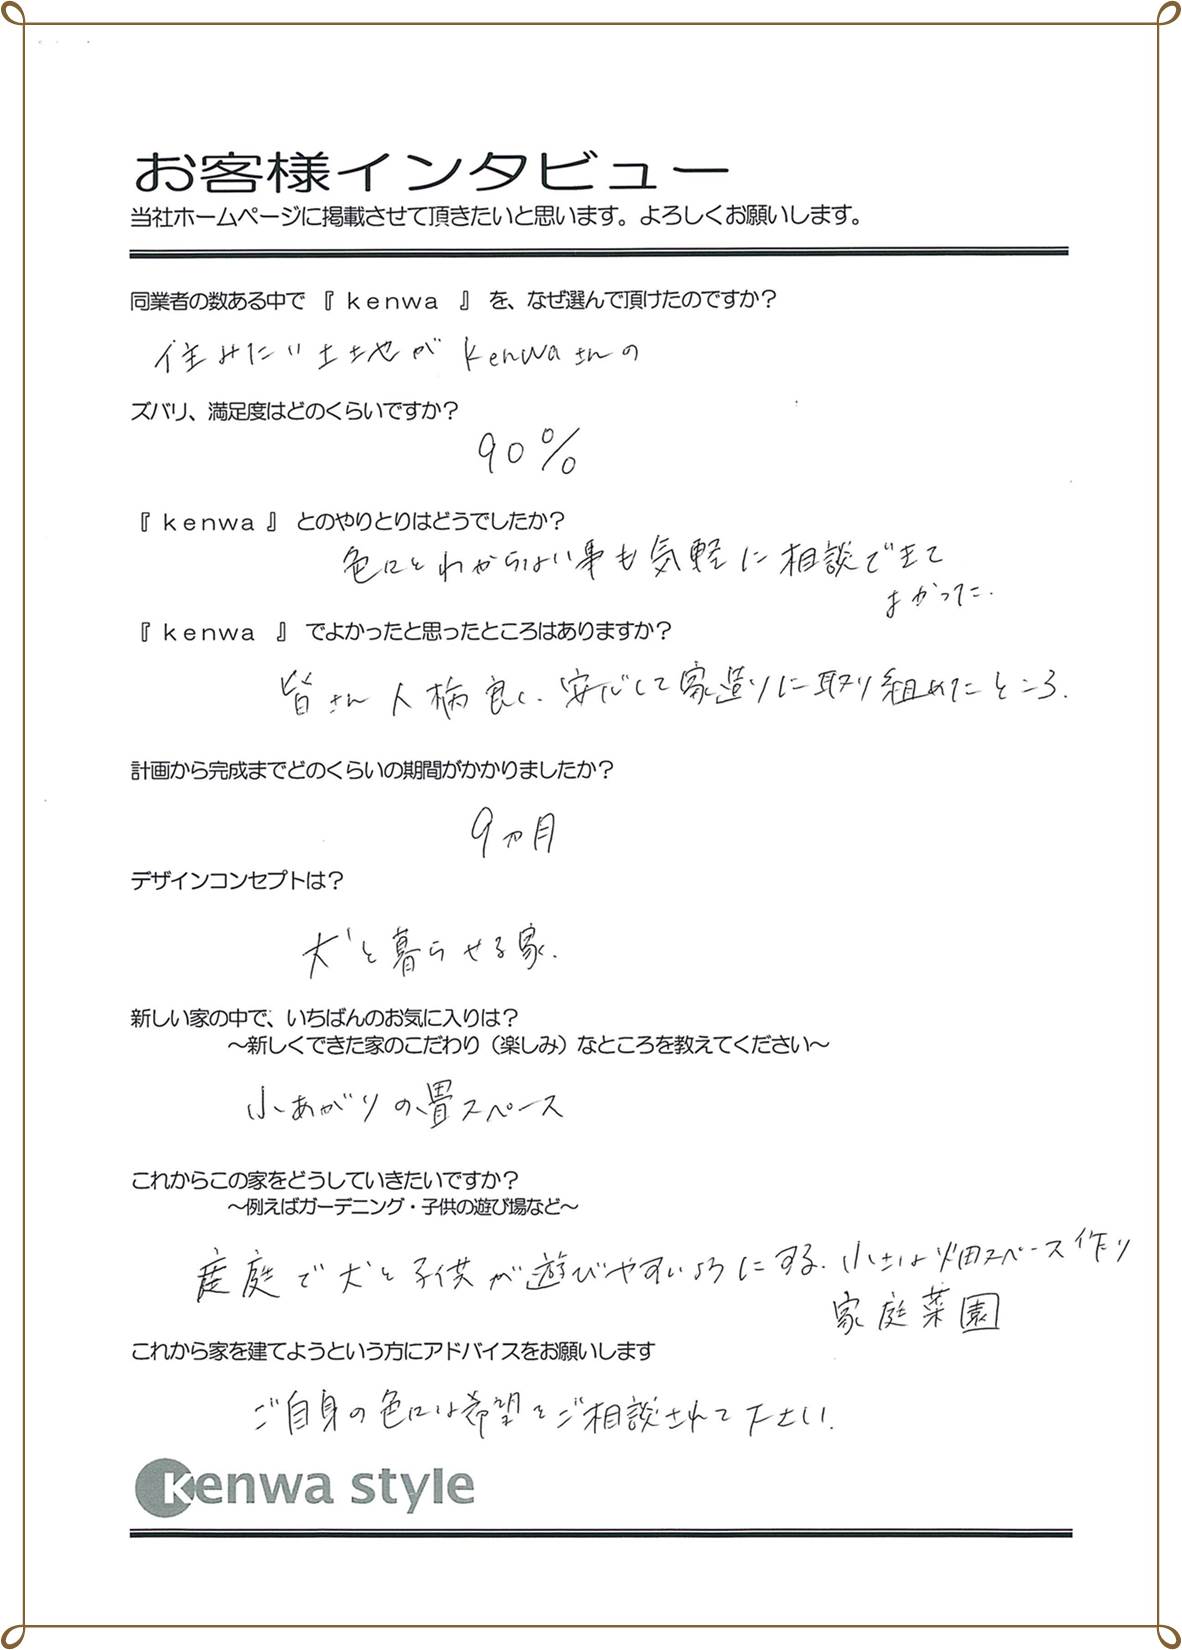 お客様インタビュー
当社ホームページに掲載させて頂きたいと思います。よろしくお願いします。
同業者の数ある中で 『 kenwa 』 を、なぜ選んで頂けたのですか？
住みたい土地が kenwaさんの
ズバリ、満足度はどのくらいですか？
90%
『 kenwa 』 とのやりとりはどうでしたか？
色々とわからない事も気軽に相談できて
よかった.
『 kenwa 』 でよかったと思ったところはありますか？
皆さん人柄良く、安心して家造りに取り組めたところ.
計画から完成までどのくらいの期間がかかりましたか？
9ヵ月
デザインコンセプトは？
犬と暮らせる家.
新しい家の中で、いちばんのお気に入りは？
～新しくできた家のこだわり（楽しみ）なところを教えてください～
小あがりの畳スペース
これからこの家をどうしていきたいですか？
～例えばガーデニング・子供の遊び場など～
庭で犬と子供が遊びやすいようにする. 小さな畑スペース作り
家庭菜園
これから家を建てようという方にアドバイスをお願いします
ご自身の色々な希望をご相談されて下さい.
kenwa style